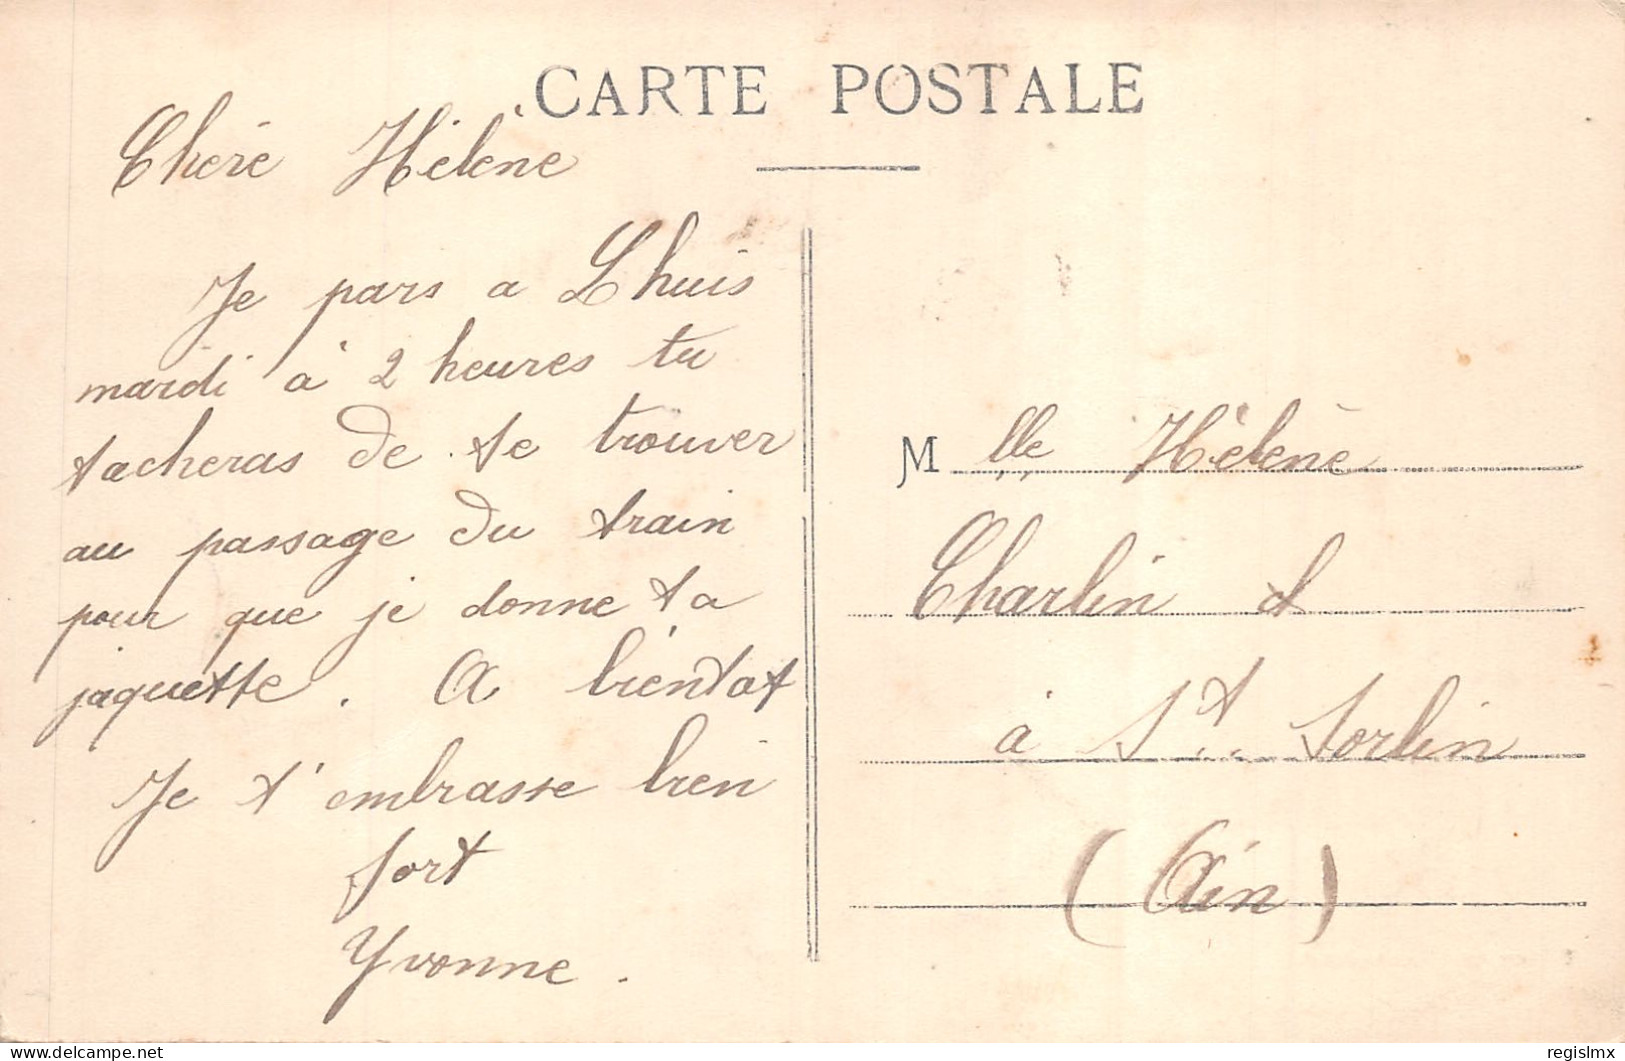 CARTE POSTALE
Cheré Hélène
Je pars a Lhuis
mardi à 2 heures tu
tacheras de te trouver
au passage du train
pour que je donne ta
jaquette. A bientot
Je t'embrasse bien
fort
Yvonne.
Mlle Hélène
Charlin
à St Sorlin
(Ain)
www.delcampe.net
regislmx